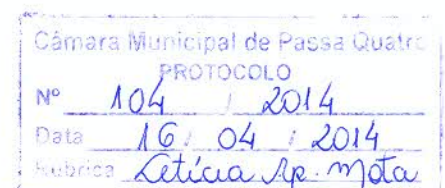 Câmara Municipal de Passa Quatro
PROTOCOLO
Nº 104 / 2014
Data 16 / 04 / 2014
Rubrica Letícia Ap. Mota